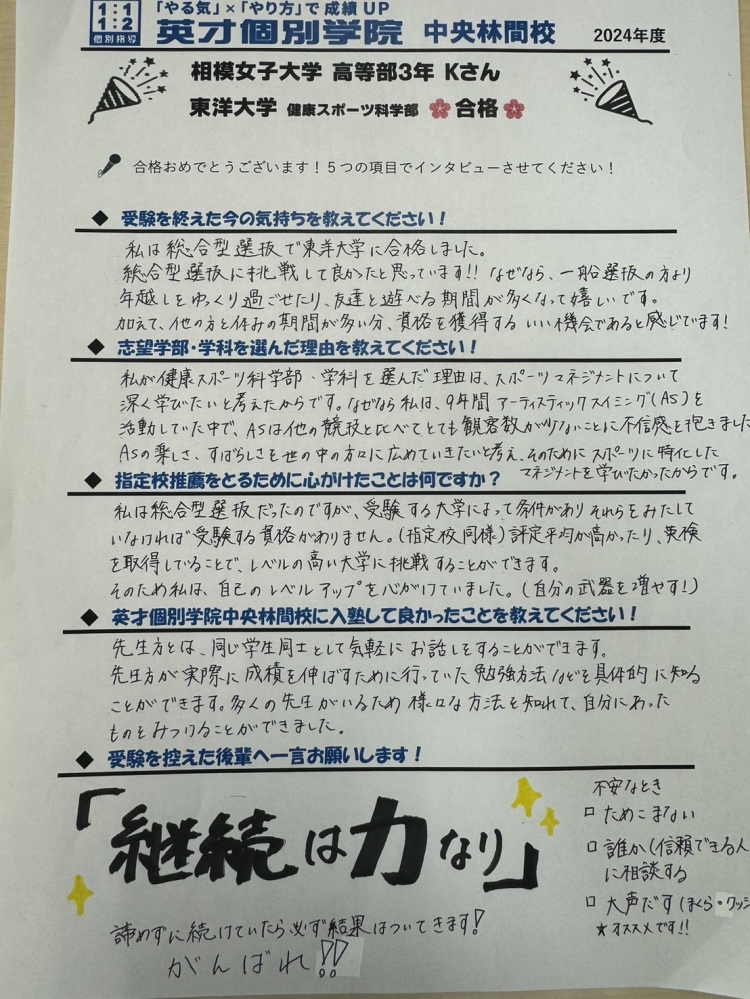 1:1
1:2
個別指導
「やる気」×「やり方」で成績UP
英才個別学院 中央林間校 2024年度
相模女子大学 高等部3年 Kさん
東洋大学 健康スポーツ科学部 合格
合格おめでとうございます！5つの項目でインタビューさせてください！
◆ 受験を終えた今の気持ちを教えてください！
私は総合型選抜で東洋大学に合格しました。
総合型選抜に挑戦して良かったと思っています!! なぜなら、一船選抜の方より
年越しをゆっくり過ごせたり、友達と遊べる期間が多くなって嬉しいです。
加えて、他の方と休みの期間が多い分、資格を獲得する いい機会であると感じています!
◆ 志望学部・学科を選んだ理由を教えてください！
私が健康スポーツ科学部・学科を選んだ理由は、スポーツマネジナントについて
深く学びたいと考えたからです。なぜなら私は、9年間 アーティスティックスイミング(AS)を
活動していた中で、ASは他の競技と比べてとても観客数が少ないことに不信感を抱きました
ASの楽しさ、すばらしさを世の中の方々に広めていきたいと考え、そのためにスポーツに特化した
マネジナントを学びたかったからです。
◆ 指定校推薦をとるために心がけたことは何ですか？
私は総合型選抜だったのですが、受験する大学によって条件がありそれらをみたして
いなければ受験する資格がありません。(指定校同様)評定平均が高かったり、英検
を取得していることで、レベルの高い大学に挑戦することができます。
そのため私は、自己のレベルアップを心がけていました。(自分の武器を増やす!)
◆ 英才個別学院中央林間校に入塾して良かったことを教えてください！
先生方とは、同じ学生同士として気軽にお話しをすることができます。
先生方が実際に成績を伸ばすために行っていた勉強方法などを具体的に知る
ことができます。多くの先生がいるため様々な方法を知れて、自分にあった
ものをみつけることができました。
◆ 受験を控えた後輩へ一言お願いします！
「継続は力なり」
諦めずに続けていたら必ず結果はついてきます!
がんばれ!!
不安なとき
□ ためこまない
□ 誰か(信頼できる人
に相談する
□ 大声だす(まくら・クッシ
★オススメです!!